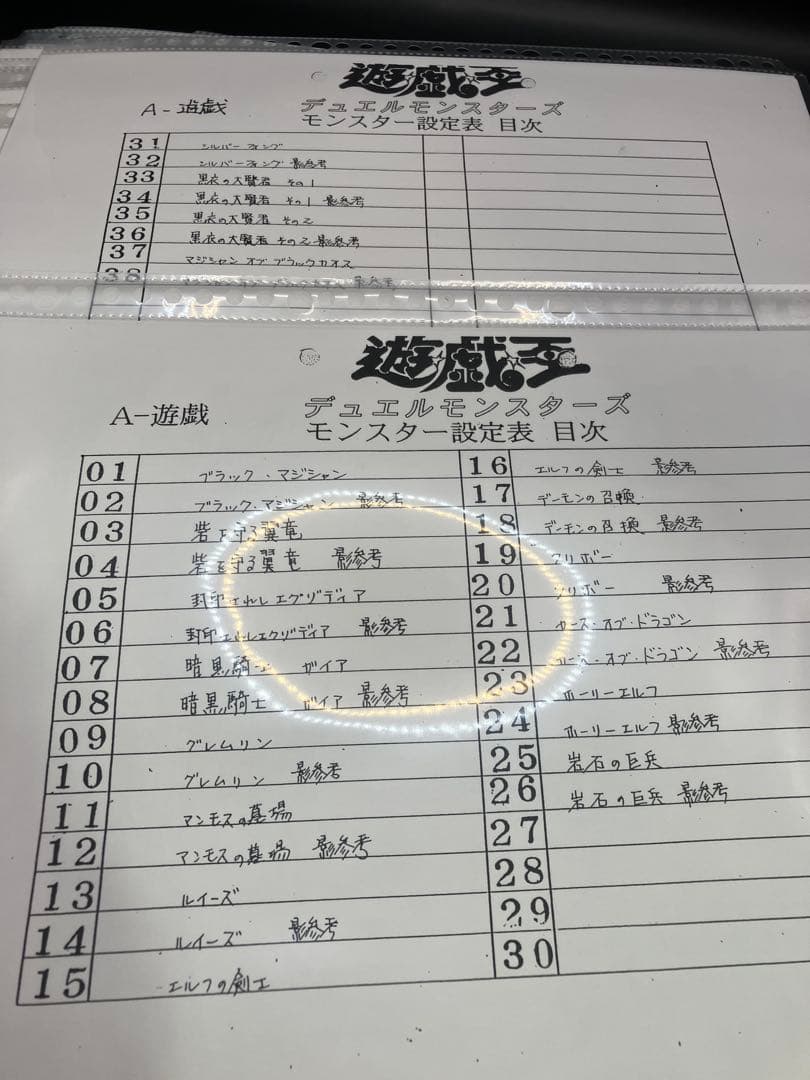 遊戯王
A-遊戯
デュエルモンスターズ
モンスター設定表 目次
31 シルバーフォング
32 シルバーフォング 影参考
33 黒衣の大賢者 その1
34 黒衣の大賢者 その1 影参考
35 黒衣の大賢者 その2
36 黒衣の大賢者 その2 影参考
37 マジシャン オブ ブラックカオス
38 影参考
遊戯王
A-遊戯
デュエルモンスターズ
モンスター設定表 目次
01 ブラック・マジシャン
02 ブラック・マジシャン 影参考
03 砦を守る翼竜
04 砦を守る翼竜 影参考
05 封印されしエグゾディア
06 封印されしエグゾディア 影参考
07 暗黒騎士 ガイア
08 暗黒騎士 ガイア 影参考
09 グレムリン
10 グレムリン 影参考
11 マンモスの墓場
12 マンモスの墓場 影参考
13 ルイーズ
14 ルイーズ 影参考
15 エルフの剣士
16 エルフの剣士 影参考
17 デーモンの召喚
18 デーモンの召喚 影参考
19 クリボー
20 クリボー 影参考
21 カース・オブ・ドラゴン
22 カース・オブ・ドラゴン 影参考
23 ホーリーエルフ
24 ホーリーエルフ 影参考
25 岩石の巨兵
26 岩石の巨兵 影参考
27
28
29
30